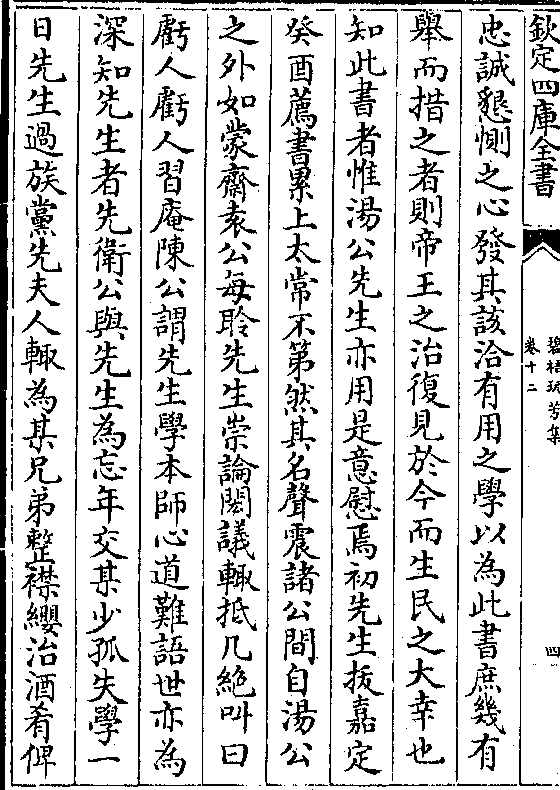 欽定四庫全書
碧梧玩芳集
卷十二
四
忠誠懇惻之心發其該洽有用之學以為此書庶幾有
舉而措之者則帝王之治復見於今而生民之大幸也
知此書者惟湯公先生亦用是意慰焉初先生拔嘉定
癸酉薦書累上太常不第然其名聲震諸公間自湯公
之外如蒙齋袁公每聆先生崇論閎議輙抵几絶叫曰
虧人虧人習庵陳公謂先生學本師心道難語世亦為
深知先生者先衛公與先生為忘年交某少孤失學一
日先生過族黨先夫人輙為某兄弟整襟纓治酒肴俾